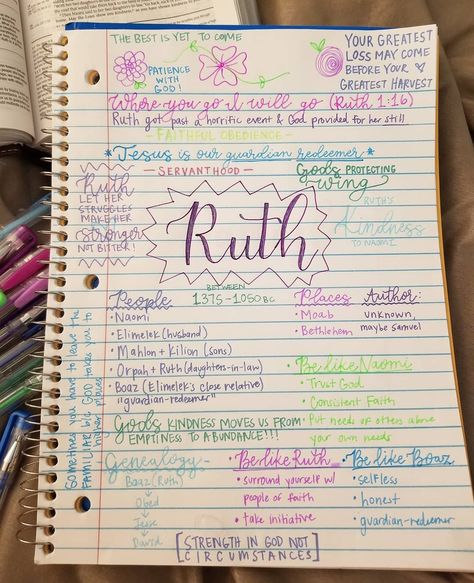 THE BEST IS YET TO COME
PATIENCE
WITH
GOD!
YOUR GREATEST
LOSS MAY COME
BEFORE YOUR
GREATEST HARVEST
Where you go I will go (Ruth 1:16)
Ruth got past a horrific event & God provided for her still
- FAITHFUL OBEDIENCE -
* Jesus is our guardian redeemer *
- SERVANTHOOD -
God's PROTECTING
wing
Ruth
LET HER
STRUGGLES
MAKE HER
Stronger
NOT BITTER!
Ruth
RUTH'S
Kindness
TO NAOMI
BETWEEN
1375-1050 BC
People
• Naomi
• Elimelek (husband)
• Mahlon + Kilion (sons)
• Orpah + Ruth (daughters-in-law)
• Boaz (Elimelek's close relative)
"guardian-redeemer"
Places
• Moab
• Bethlehem
Author:
unknown,
maybe samuel
Be like Naomi
• Trust God
• Consistent Faith
• Put needs of others above
your own needs
Sometimes you have to leave the
FAMILIAR: GOD takes you to
another place
God's KINDNESS MOVES US FROM
EMPTINESS TO ABUNDANCE!!!
Genealogy-
Boaz (Ruth)
Obed
Jesse
David
Be like Ruth
• surround yourself w/
people of faith
• take initiative
Be like Boaz
• selfless
• honest
• guardian-redeemer
[STRENGTH IN GOD NOT
CIRCUMSTANCES]